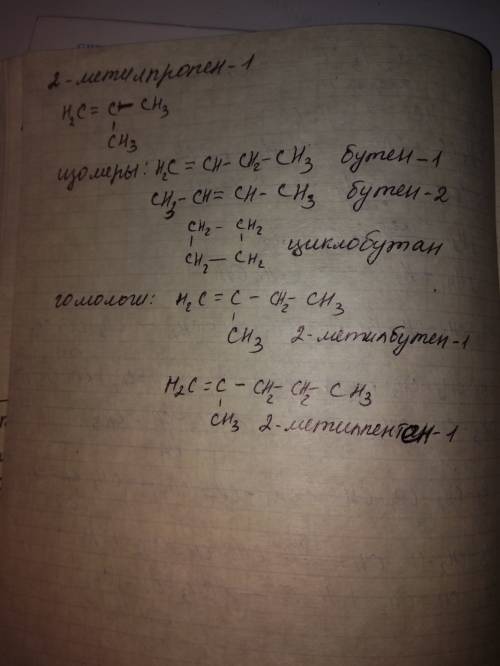 2-метилпропен-1
H₂C = C - CH₃
CH₃
изомеры: H₂C = CH - CH₂ - CH₃ бутен-1
CH₃ - CH = CH - CH₃ бутен-2
CH₂ - CH₂
CH₂ - CH₂ циклобутан
гомологи: H₂C = C - CH₂ - CH₃
CH₃ 2-метилбутен-1
H₂C = C - CH₂ - CH₂ - CH₃
CH₃ 2-метилпентен-1